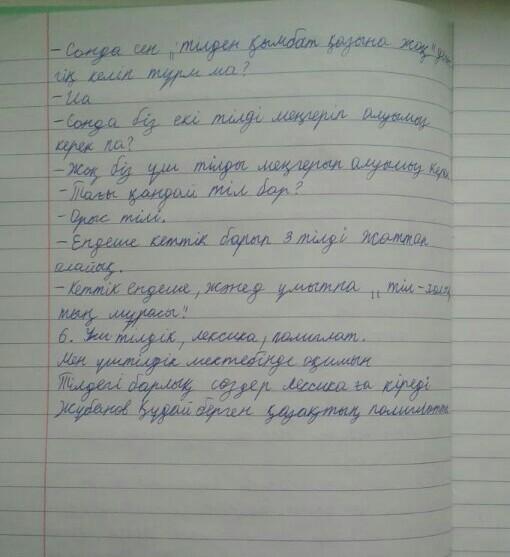 - Сонда сен „тілден қымбат қазына жоқ"
гің келіп түрм ма?
- Иа
- Сонда біз екі тілді меңгеріп алуымыз
керек па?
- Жоқ біз үш тілды меңгерып алуымыз кере
- Тағы қандай тіл бар?
- Орыс тілі.
- Ендеше кеттік барып 3 тілді жаттап
алайық.
- Кеттік ендеше, және ұмытпа „тіл-халық
тың мұрасы"!
6. Үш тілдік, лексика, полиглат.
Мен үштілдік мектебінде оқимын
Тілдегі барлық сөздер лексика ға кіреді
Жұбанов Құдай берген қазақтың